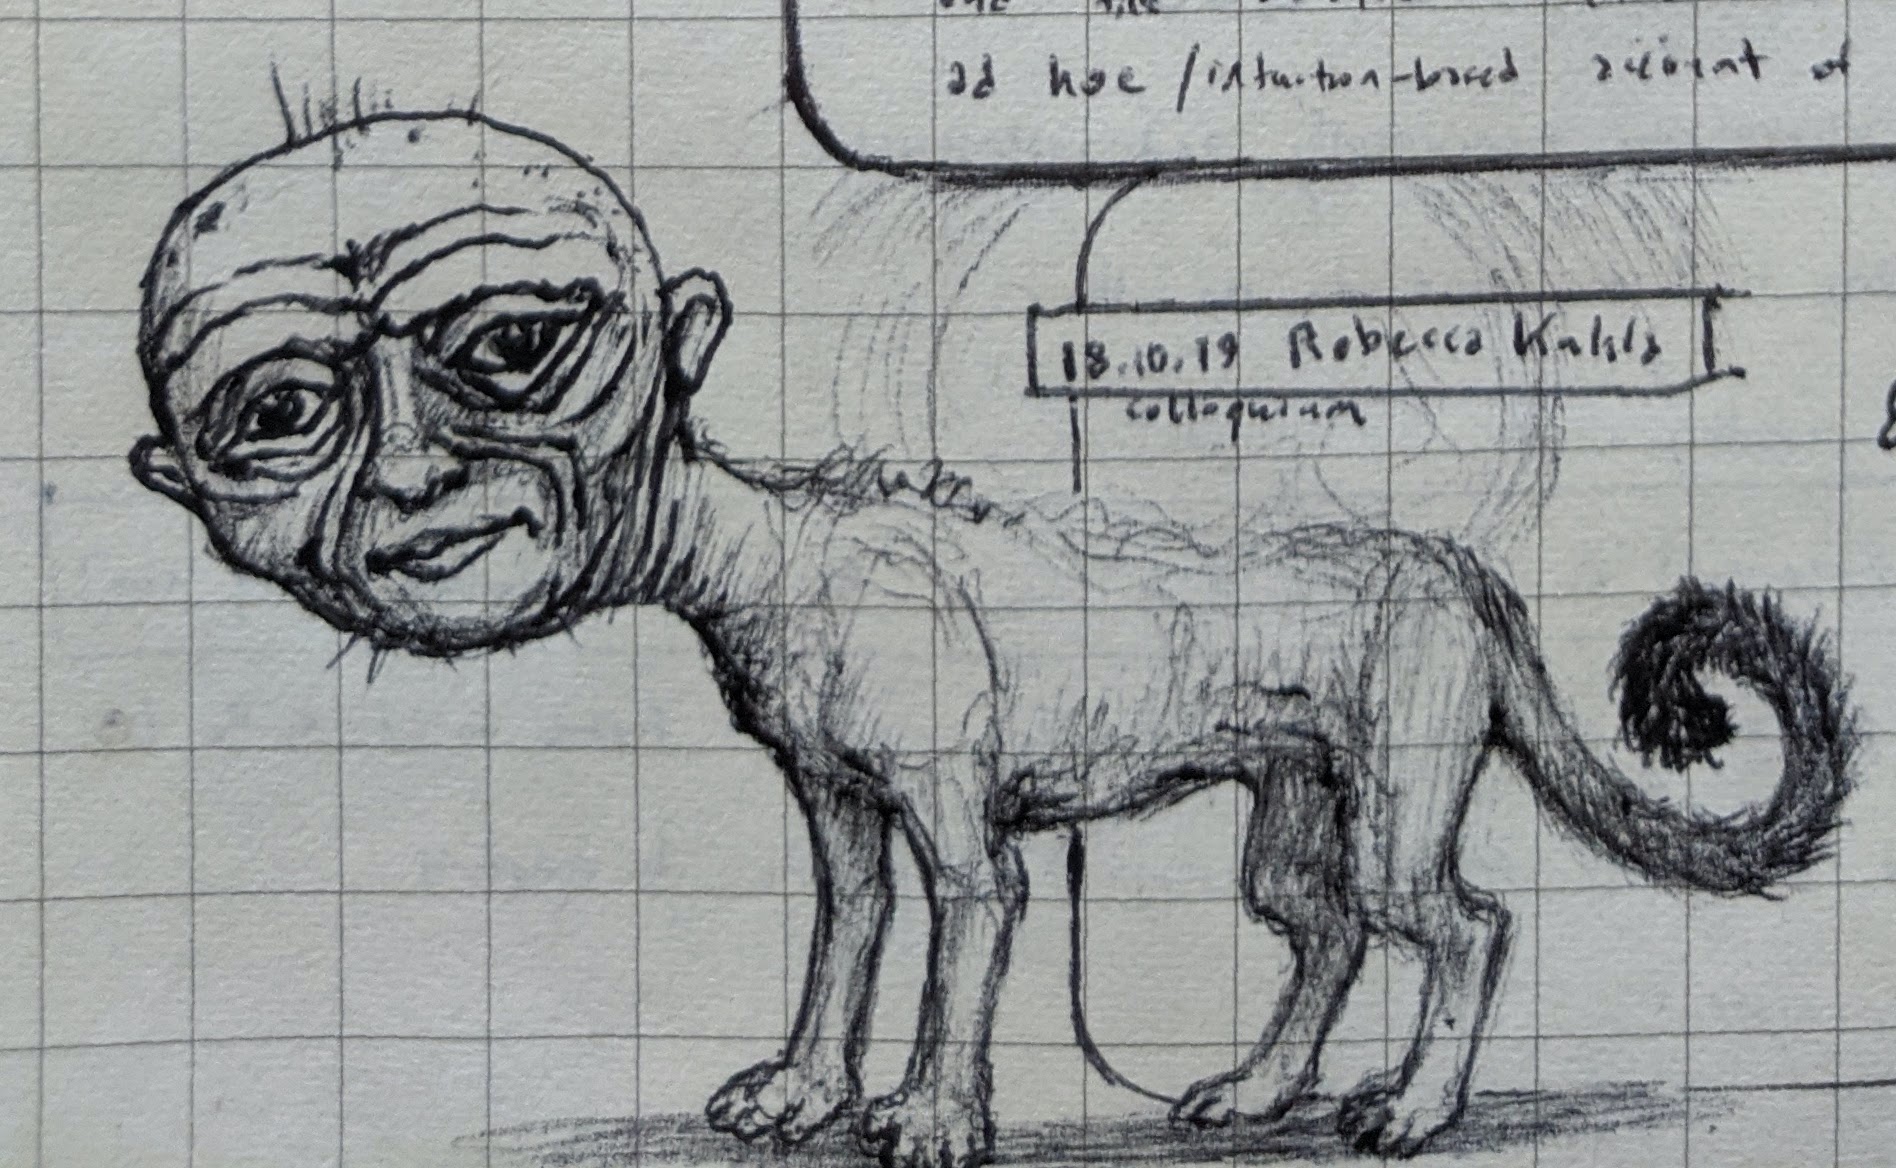 ad hoc / intuition-based account of
18.10.19 Rebecca Kukla
colloquium